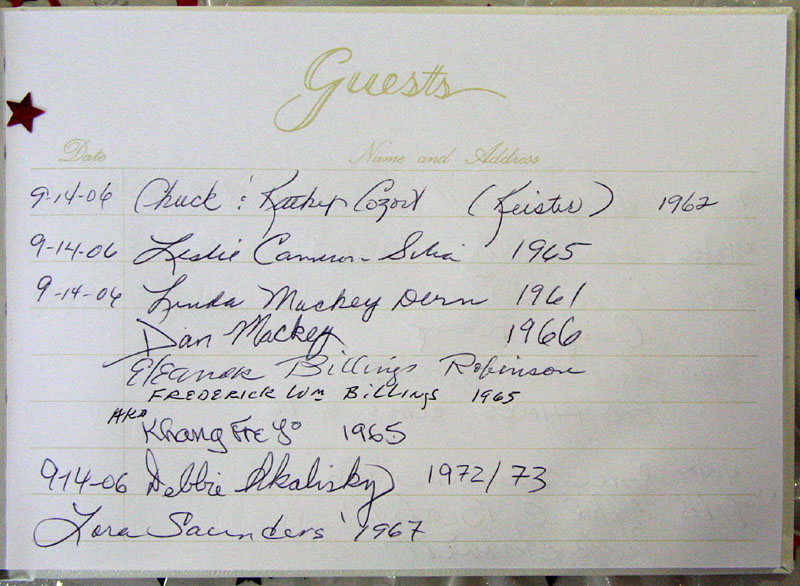 Guests
Date Name and Address
9-14-06 Chuck & Kathey Cozort (Keister) 1962
9-14-06 Leslie Cameron 1965
9-14-06 Linda Mackey Dern 1961
Dan Mackey 1966
Eleanor Billings Robinson
FREDERICK Wm BILLINGS 1965
AKA
Khang 1965
9-14-06 Debbie 1972/73
Lora Saunders '1967